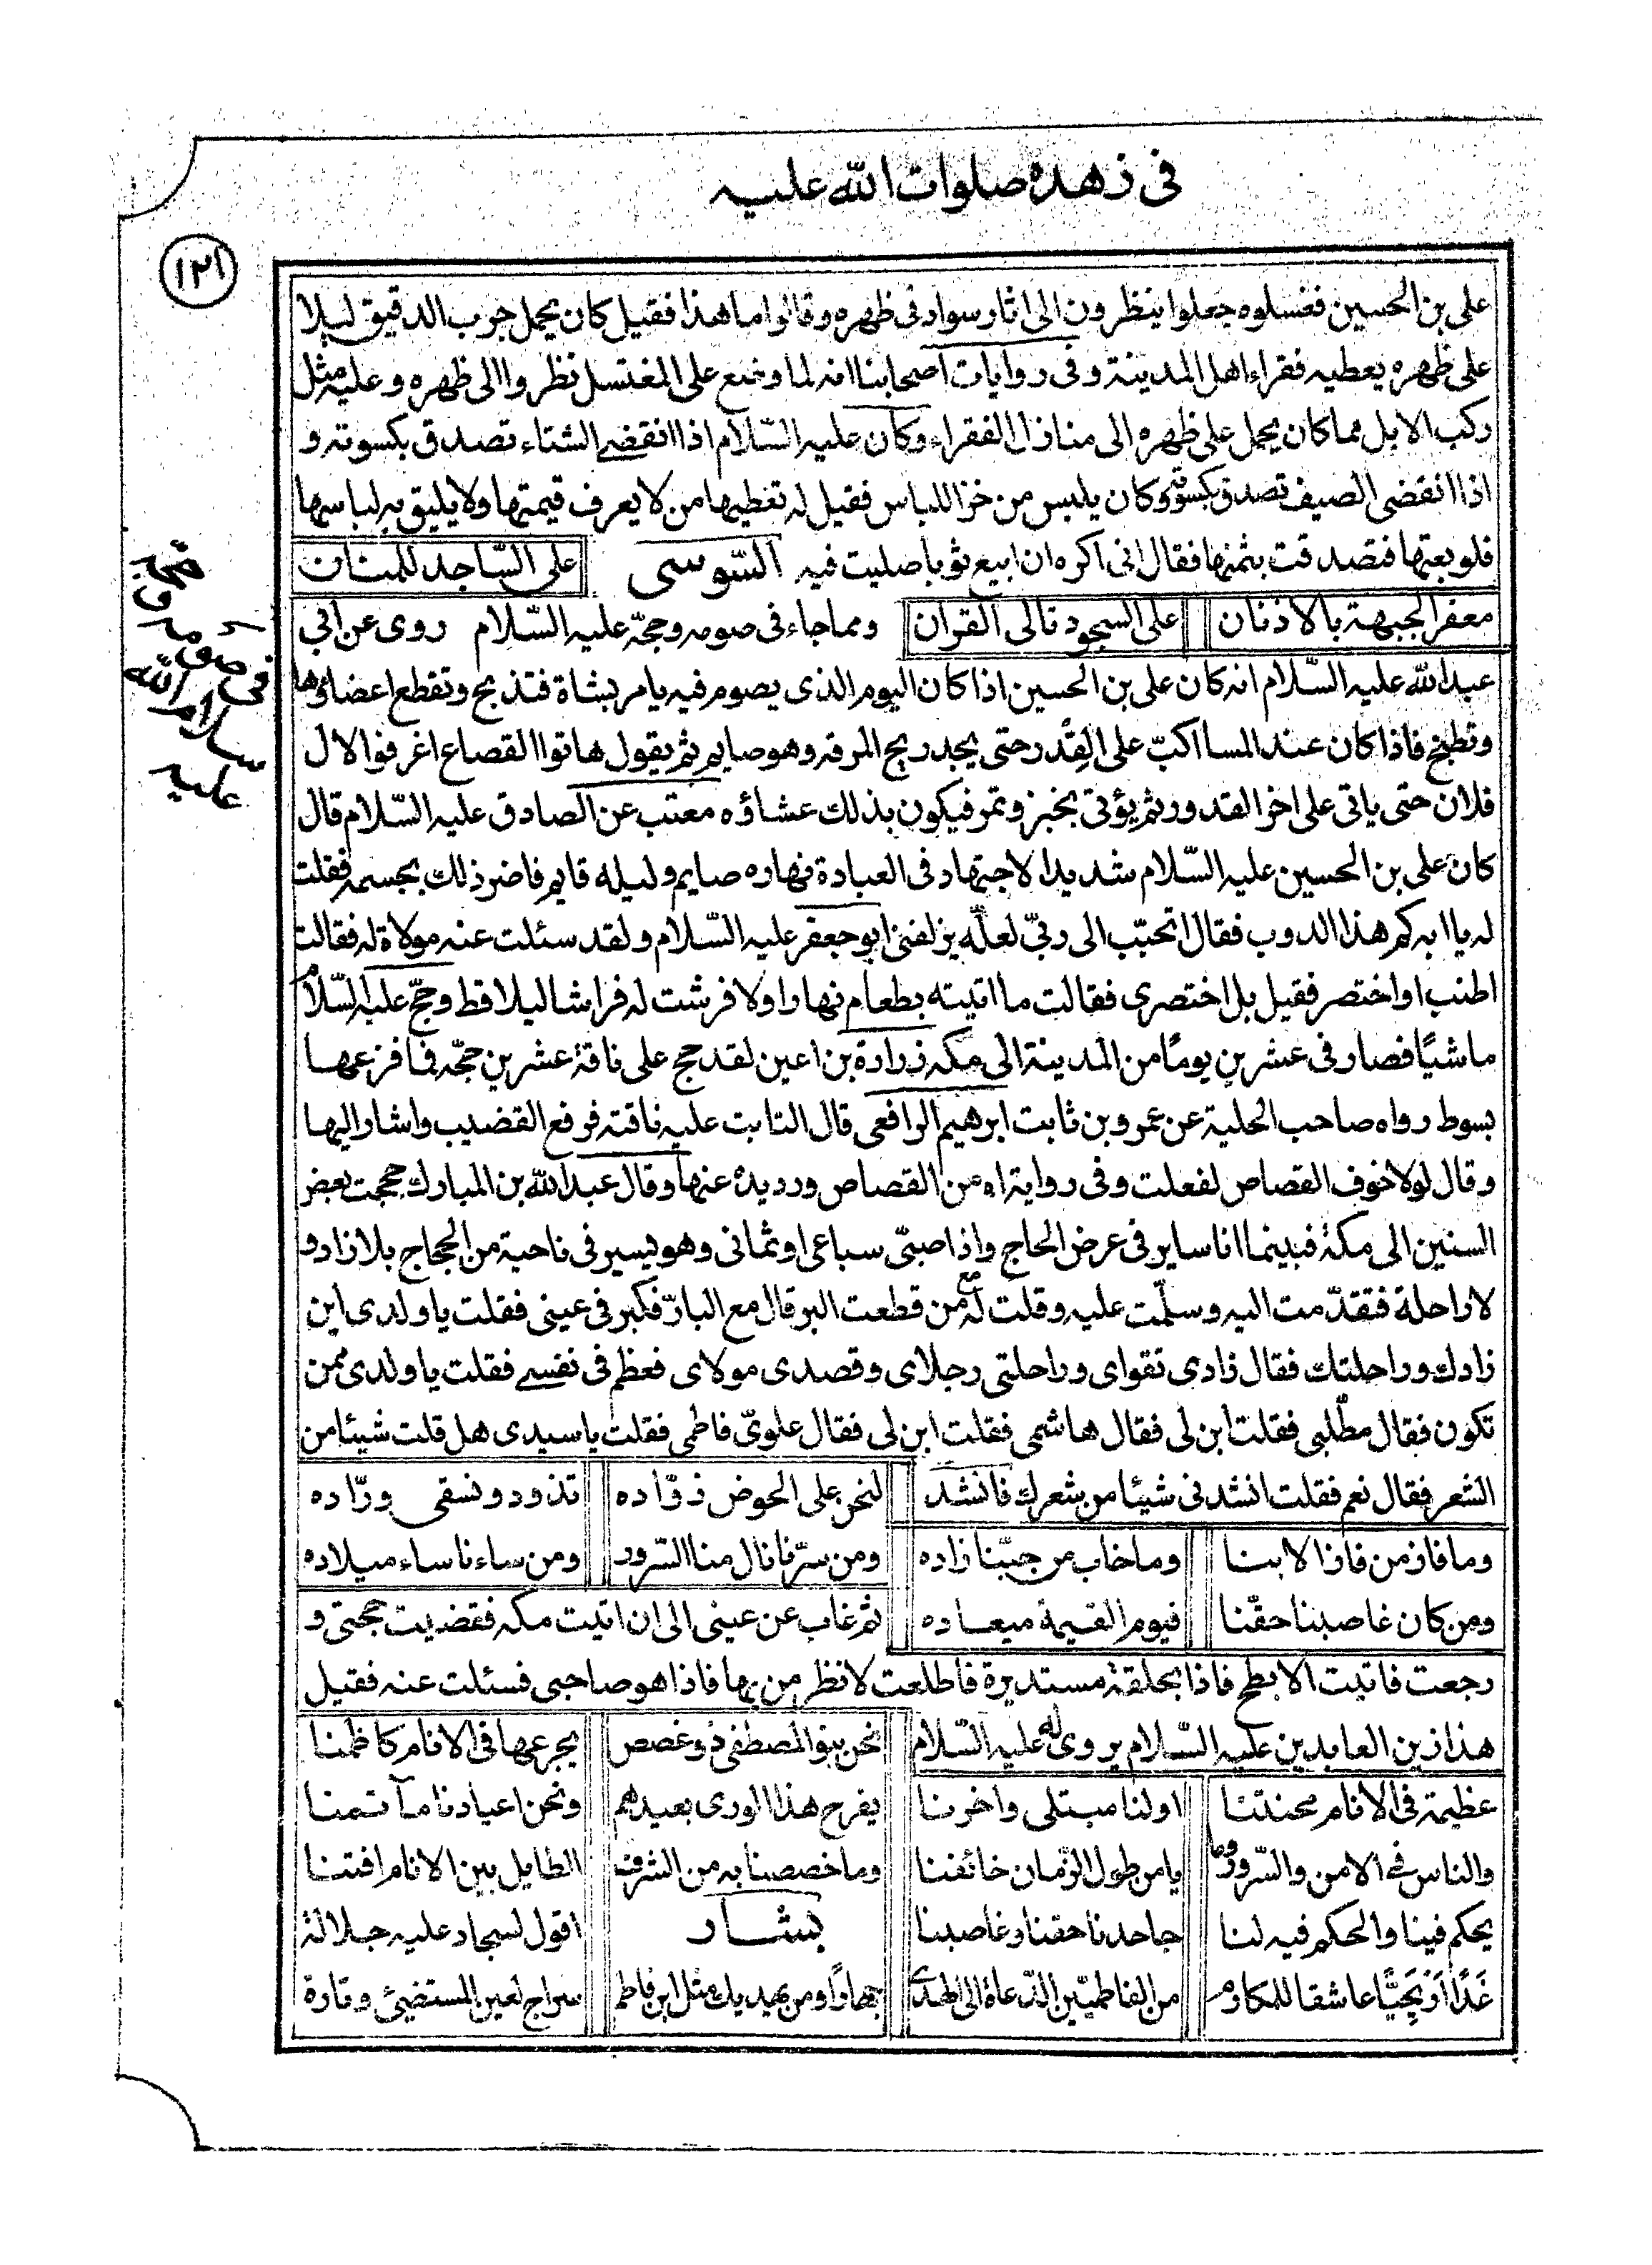 فى زهده صلوات الله عليه
١٢١
على بن الحسين فغسلوه جعلوا ينظرون الى اثار سواد فى ظهره وقالوا ما هذا فقيل كان يحمل جرب الدقيق ليلا
على ظهره يعطيه فقراء اهل المدينة وفى روايات اصحابنا انه لما وضع على المغتسل نظروا الى ظهره وعليه مثل
ركب الابل مما كان يحمل على ظهره الى منازل الفقراء وكان عليه السّلام اذا انقضى الشتاء تصدق بكسوته و
اذا انقضى الصيف تصدق بكسوته وكان يلبس من خز اللباس فقيل له تعطيها من لا يعرف قيمتها ولا يليق به لباسها
فلو بعتها فتصدقت بثمنها فقال انى اكره ان ابيع ثوبا صليت فيه السّوسى على السّاجد للمنان
معفر الجبهة بالاذنان على السجود تالى القران ومما جاء فى صومه وحجّه عليه السّلام روى عن ابي
عبد الله عليه السّلام انه كان على بن الحسين اذا كان اليوم الذى يصوم فيه يامر بشاة فتذبح وتقطع اعضاؤها
وتطبخ فاذا كان عند المسا اكبّ على القِدْر حتى يجد ريح المرقه وهو صايم ثم يقول هاتوا القصاع اغرفوا لال
فلان حتى ياتى على اخر القدور ثم يؤتى بخبز وتمر فيكون بذلك عشاؤه معتب عن الصادق عليه السّلام قال
كان على بن الحسين عليه السّلام شديد الاجتهاد فى العبادة نهاره صايم وليله قايم فاضر ذلك بجسمه فقلت
له يا ابه كم هذا الدوب فقال اتحبّب الى ربّى لعلّه يزلفنى ابو جعفر عليه السّلام ولقد سئلت عنه مولاة له فقالت
اطنب او اختصر فقيل بل اختصرى فقالت ما اتيته بطعام نهارا ولا فرشت له فراشا ليلا قط وحجّ عليه السّلام
ماشيًا فصار فى عشرين يومًا من المدينة الى مكه زرارة بن اعين لقد حج على ناقة عشرين حجّه فما قرعها
بسوط رواه صاحب الحلية عن عمرو بن ثابت ابرهيم الرافعى قال التاثت عليه ناقته فرفع القضيب واشار اليها
وقال لولا خوف القصاص لفعلت وفى رواية اه من القصاص ورد يده عنها وقال عبد الله بن المبارك حججت بعض
السنين الى مكة فبينما انا ساير فى عرض الحاج واذا صبىّ سباعى او ثمانى وهو يسير فى ناحية من الحجاج بلا زاد و
لا راحلة فتقدّمت اليه وسلّمت عليه وقلت له مع من قطعت البر قال مع البارّ فكبر فى عينى فقلت يا ولدى اين
زادك وراحلتك فقال زادى تقواى وراحلتى رجلاى وقصدى مولاى فعظم فى نفسى فقلت يا ولدى ممن
تكون فقال مطّلبى فقلت ابن لى فقال هاشمى فقلت ابن لى فقال علوىّ فاطمى فقلت يا سيدى هل قلت شيئا من
الشعر فقال نعم فقلت انشدنى شيئا من شعرك فانشد لنحن على الحوض ذوّاده تذود ونسقى ورّاده
وما فاز من فاز الا بنا وما خاب من حبّنا زاده ومن سرّنا نال منا السّرور ومن ساءنا ساء ميلاده
ومن كان غاصبنا حقّنا فيوم القيمة ميعاده ثم غاب عن عينى الى ان اتيت مكه فقضيت حجتى و
رجعت فاتيت الابطح فاذا بحلقة مستديرة فاطلعت لانظر من بها فاذا هو صاحبى فسئلت عنه فقيل
هذا زين العابدين عليه السّلام يروى له عليه السّلام نحن بنو المصطفى ذو غصص يجرعها فى الانام كاظمنا
عظيمة فى الانام محنتنا اولنا مبتلى واخرنا يفرح هذا الورى بعيدهم ونحن اعيادنا مآتمنا
والناس فى الامن والسّرور وما يامن طول الزّمان خائفنا وما خصصنا به من الشرف الطايل بين الانام افتنا
يحكم فينا والحكم فيه لنا جاحدنا حقنا وغاصبنا بشار اقول لسجاد عليه جلالة
غَدَا اَرْيَحِيًّا عاشقا للمكارم من الفاطميّين الدّعاة الى الهدى جهارًا ومن يهديك مثل ابن فاطم سراج لعين المستضئ وتارة
فى صومه وحجّه
سلام الله
عليه